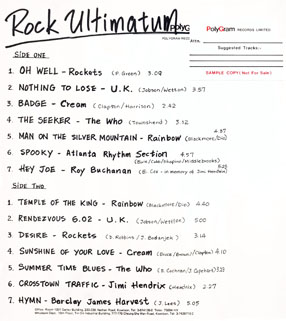 Rock Ultimatum
PolyGram RECORDS LIMITED
Suggested Tracks -
SAMPLE COPY (Not For Sale)
SIDE ONE
1. OH WELL - Rockets (P. Green) 3.09
2. NOTHING TO LOSE - U.K. (Jobson/Wetton) 3:57
3. BADGE - Cream (Clapton/Harrison) 2.42
4. THE SEEKER - The Who (Townshend) 3.12
5. MAN ON THE SILVER MOUNTAIN - Rainbow (Blackmore/Dio)
6. SPOOKY - Atlanta Rhythm Section 4:57
(Buie/Cobb/Shapiro/Middlebrooks)
7. HEY JOE - Roy Buchanan
SIDE TWO
1. TEMPLE OF THE KING - Rainbow (Blackmore/Dio) 4.40
2. RENDEZVOUS 6.02 - U.K. (Jobson/Wetton) 5.00
3. DESIRE - Rockets 3.14
4. SUNSHINE OF YOUR LOVE - Cream (Bruce/Brown/Clapton) 4.10
5. SUMMER TIME BLUES - The Who
6. CROSSTOWN TRAFFIC - Jimi Hendrix (Hendrix) 2.27
7. HYMN - Barclay James Harvest (J. Lees) 5.05